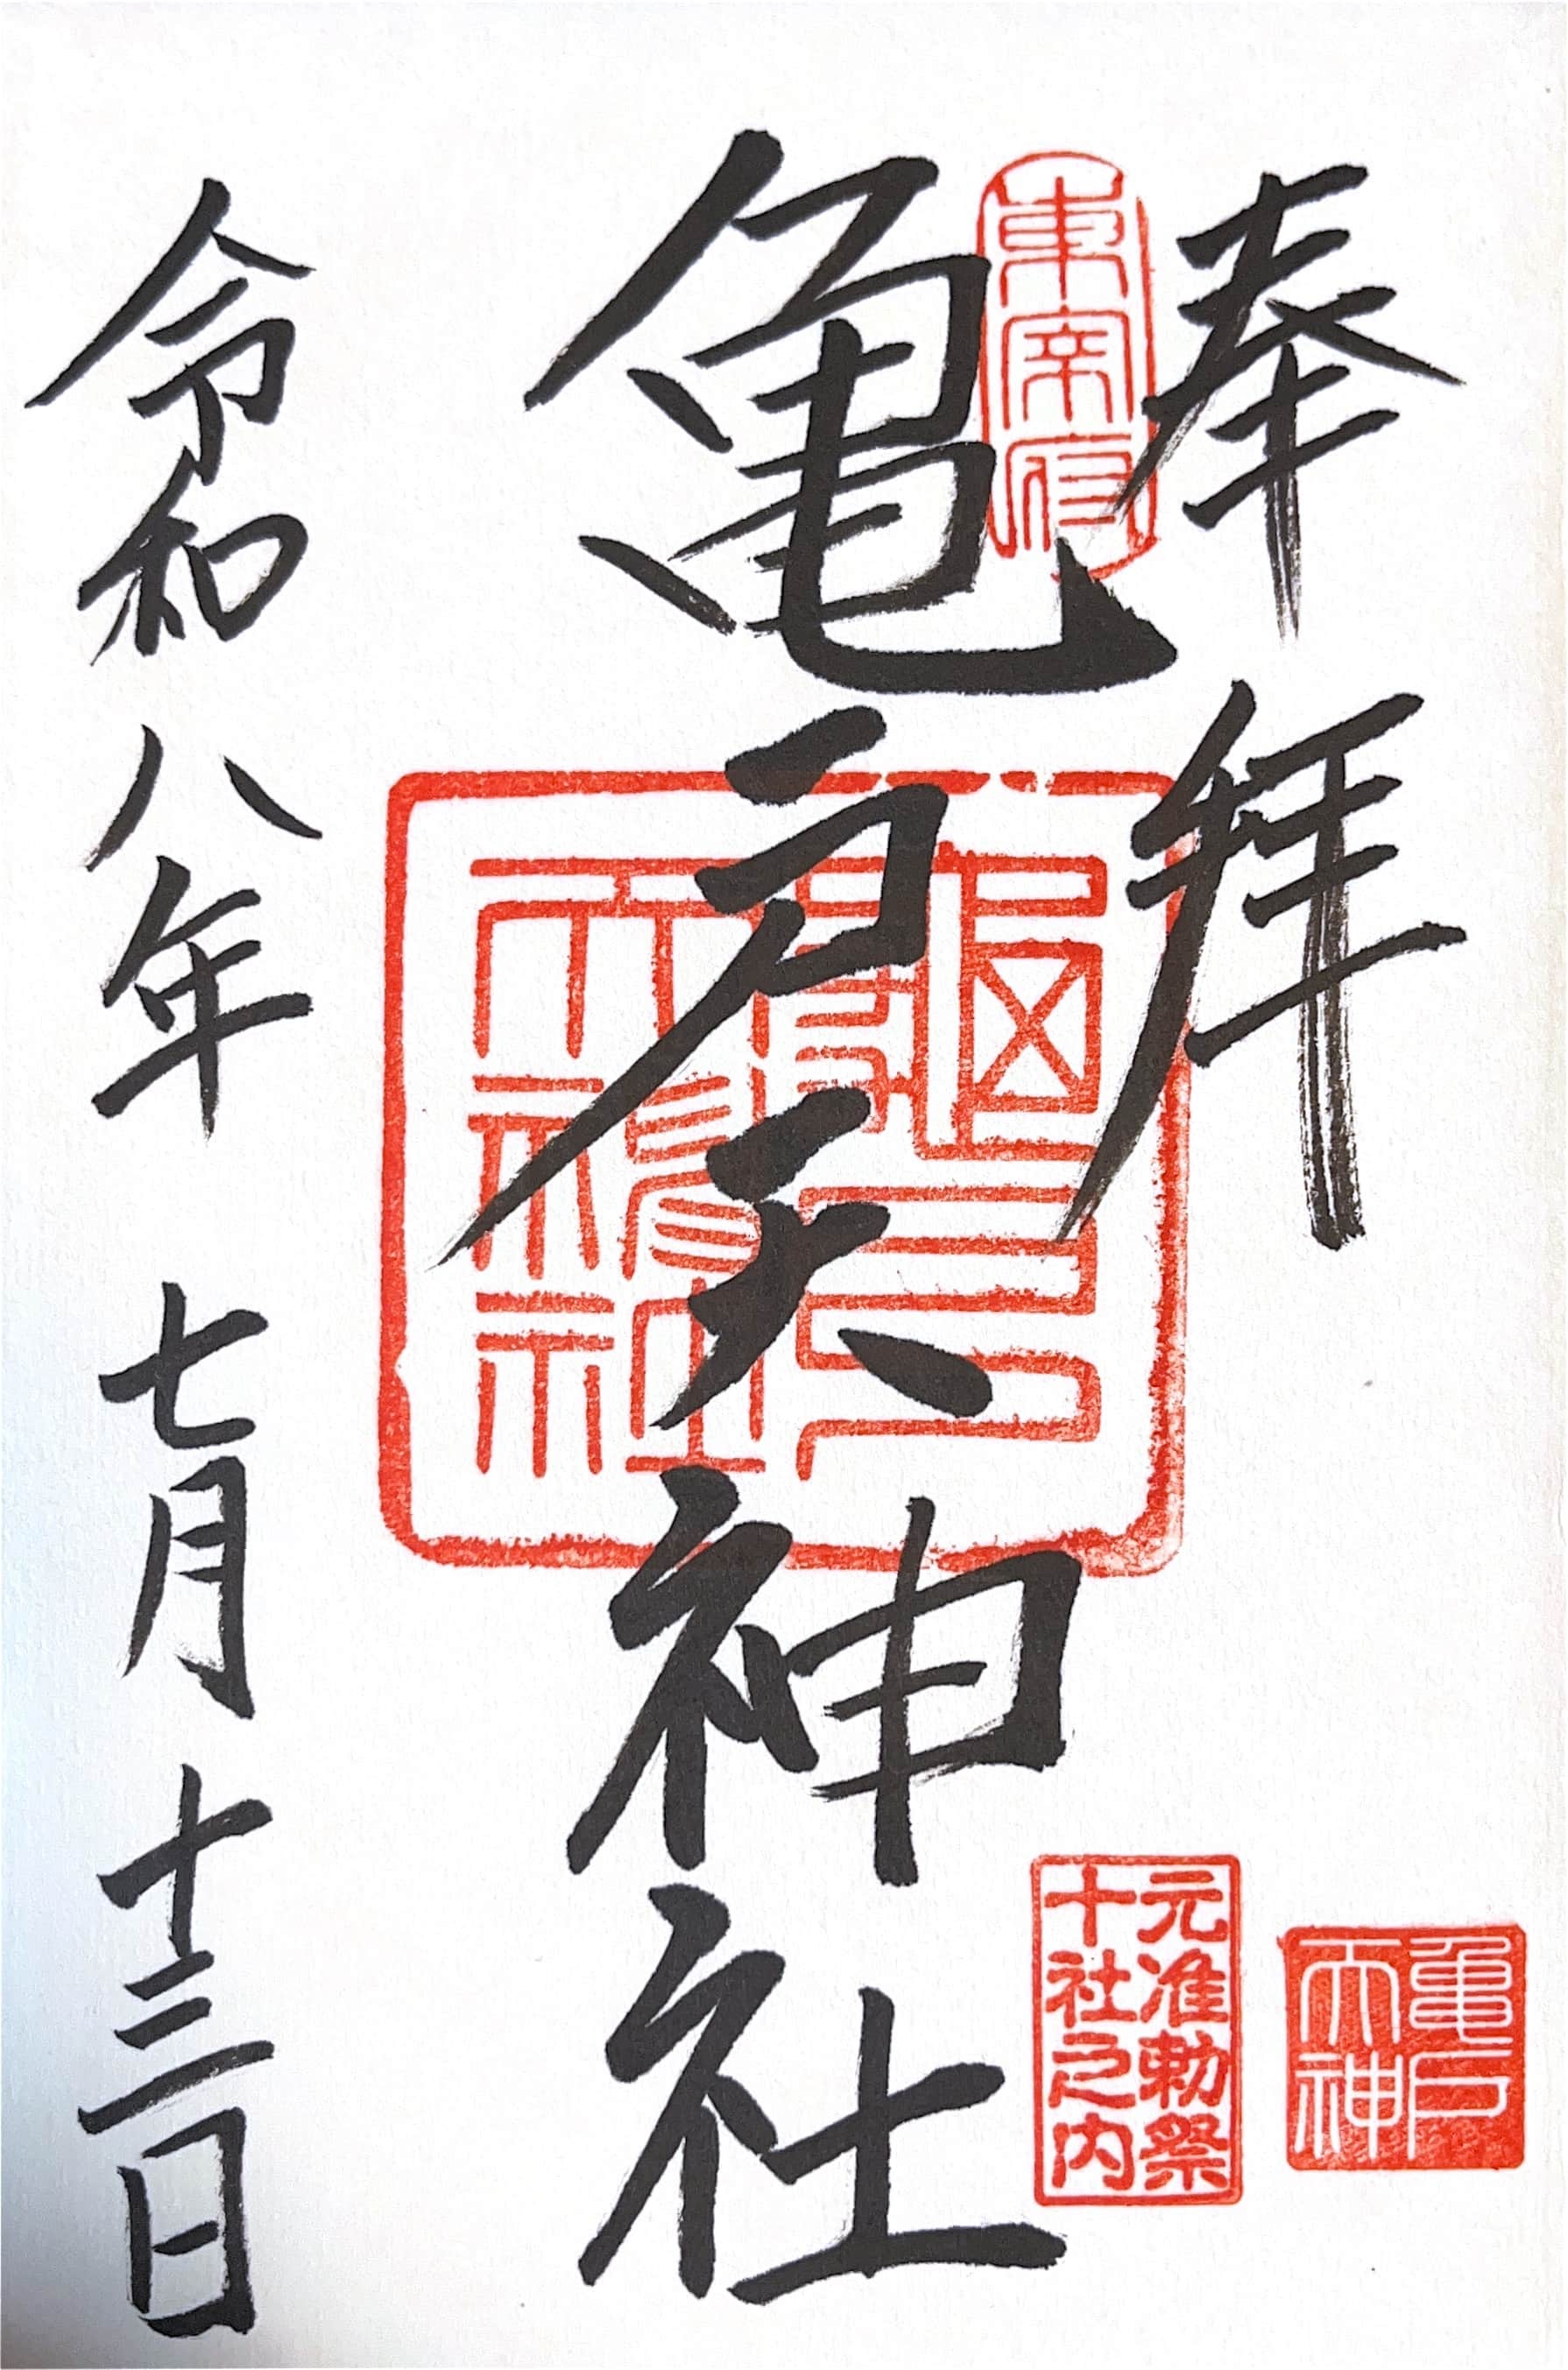 奉拝
東宰府
亀戸天神社
龜戸天神社
元准勅祭
十社之内
亀戸
天神
令和八年七月十三日